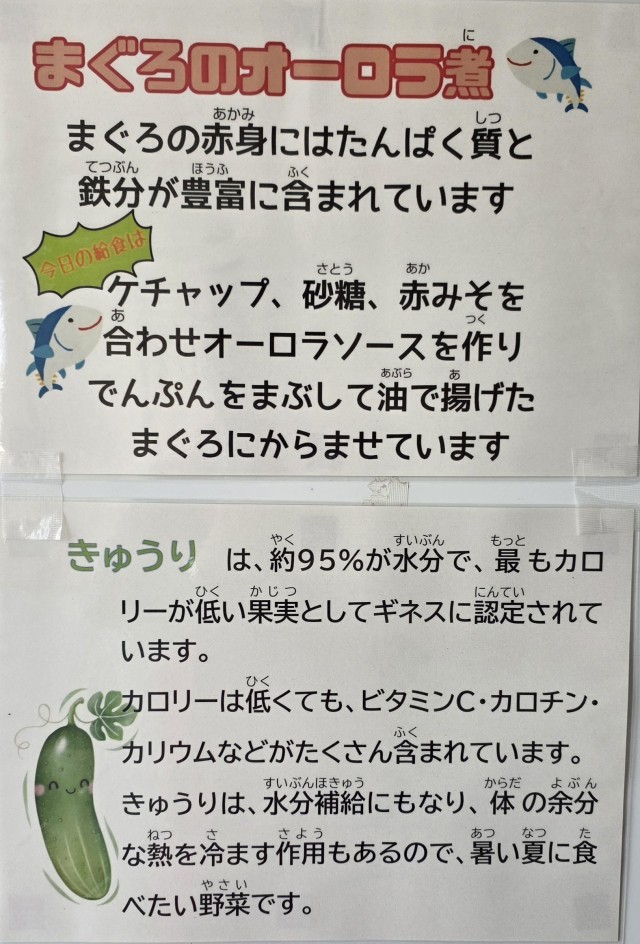 まぐろのオーロラ煮
まぐろの赤身にはたんぱく質と
鉄分が豊富に含まれています
今日の給食は
ケチャップ、砂糖、赤みそを
合わせオーロラソースを作り
でんぷんをまぶして油で揚げた
まぐろにからませています
きゅうり は、約95%が水分で、最もカロ
リーが低い果実としてギネスに認定されて
います。
カロリーは低くても、ビタミンC・カロチン・
カリウムなどがたくさん含まれています。
きゅうりは、水分補給にもなり、体の余分
な熱を冷ます作用もあるので、暑い夏に食
べたい野菜です。